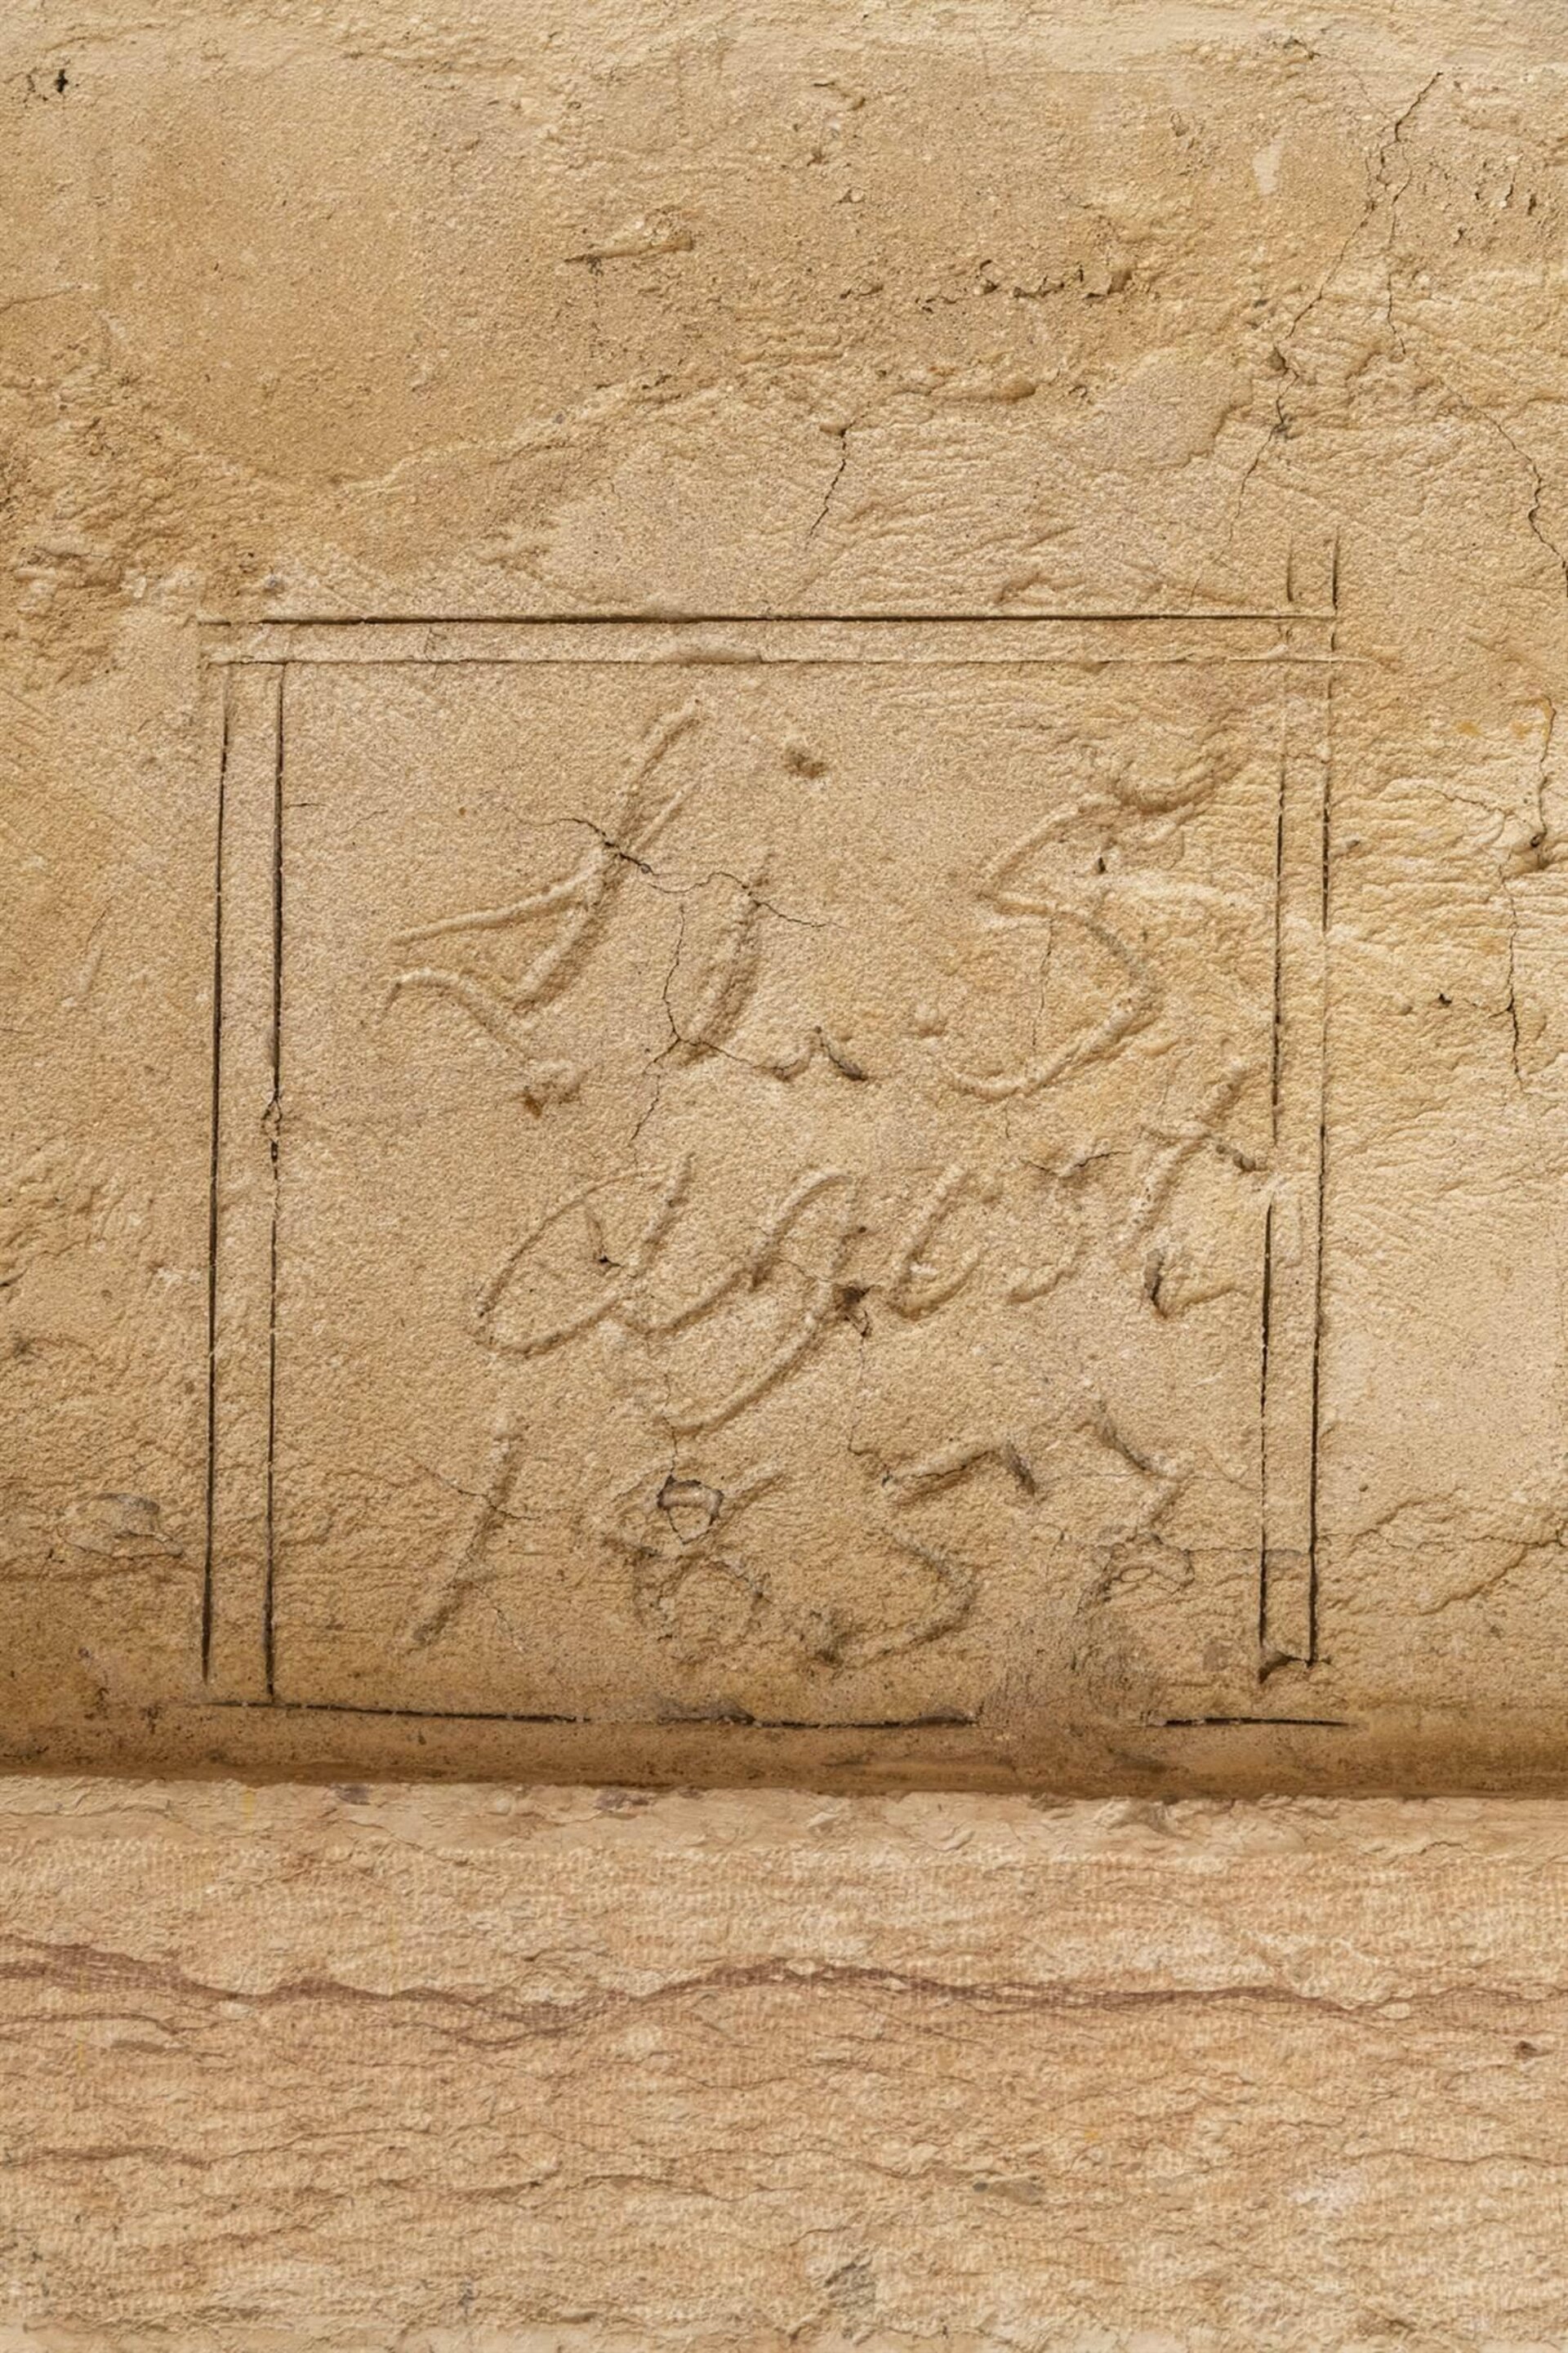 di 5
Agosto
1857